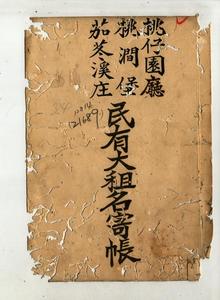 桃仔園廳
桃澗堡
茄苳溪庄
民有大租名寄帳
21689